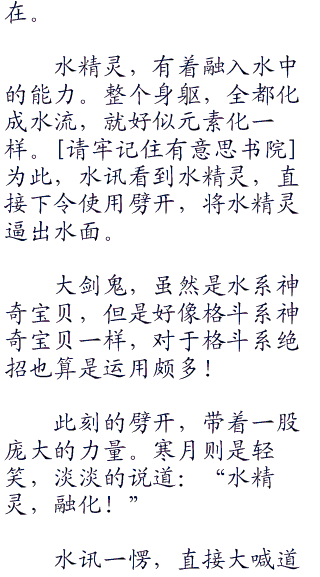 在。
水精灵，有着融入水中
的能力。整个身躯，全都化
成水流，就好似元素化一
样。[请牢记住有意思书院]
为此，水讯看到水精灵，直
接下令使用劈开，将水精灵
逼出水面。
大剑鬼，虽然是水系神
奇宝贝，但是好像格斗系神
奇宝贝一样，对于格斗系绝
招也算是运用颇多！
此刻的劈开，带着一股
庞大的力量。寒月则是轻
笑，淡淡的说道：“水精
灵，融化！”
水讯一愣，直接大喊道